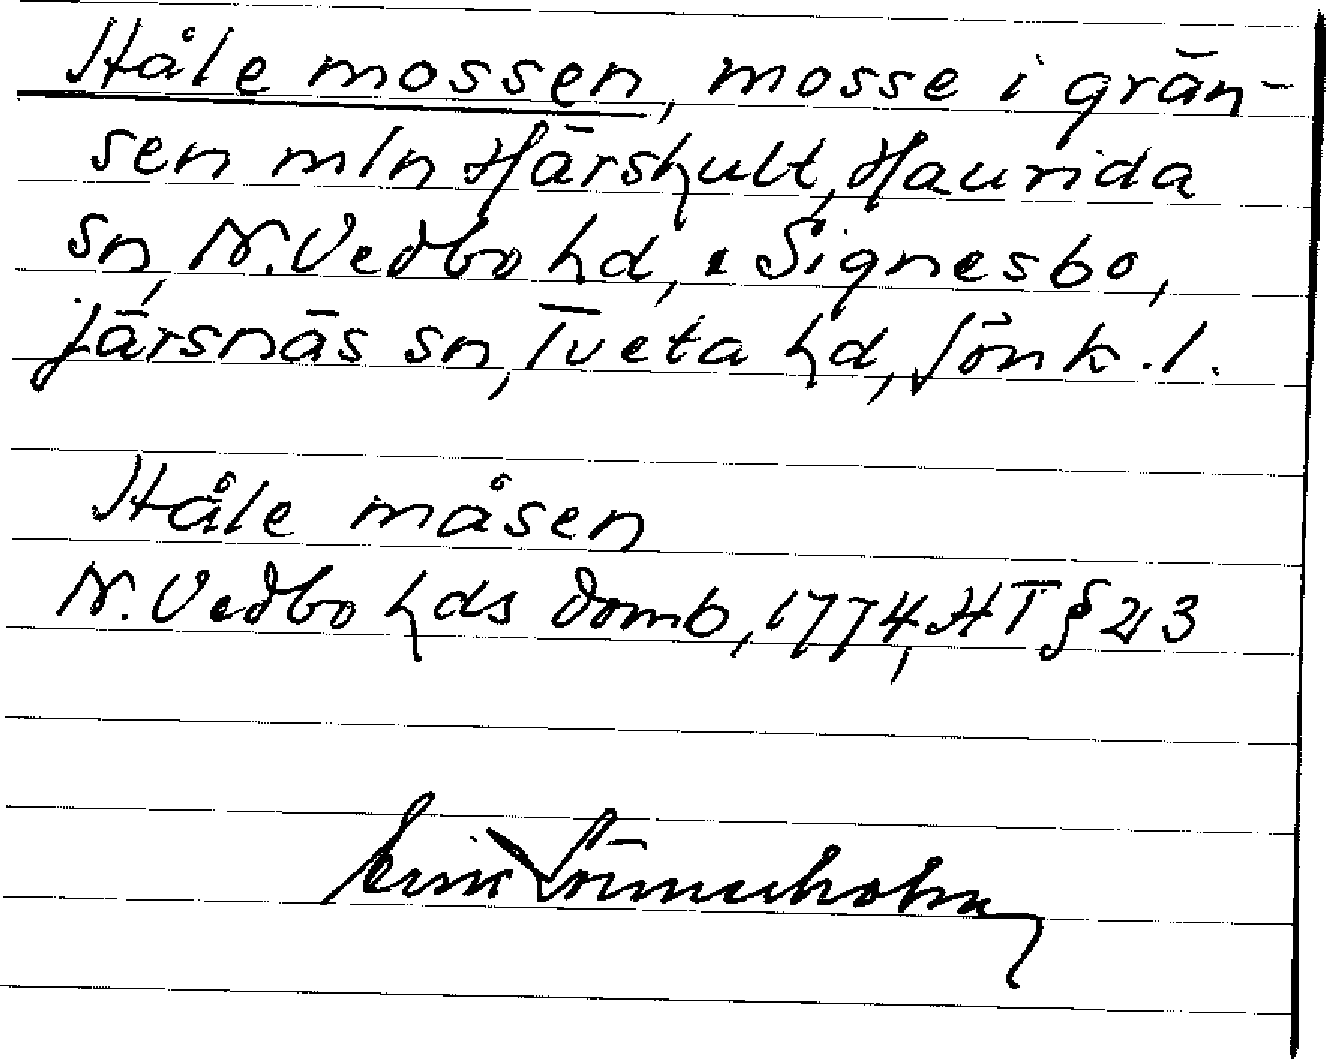 Håle mossen, mosse i grän-
sen mln Härshult, Haurida
sn, N. Vedbo hd, o Signesbo,
Järsnäs sn, Tveta hd, Jönk. l.
Håle måsen
N. Vedbo hds domb, 1774, HT § 23